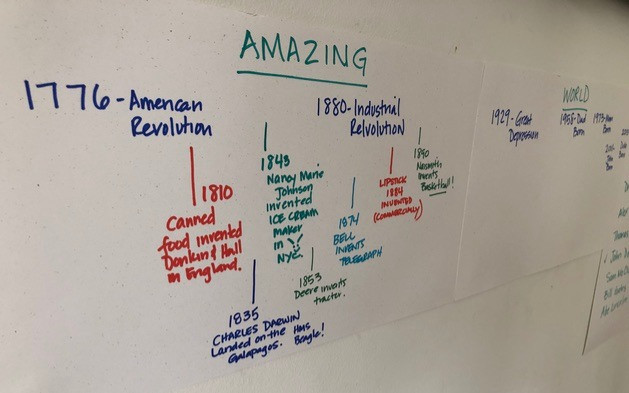 AMAZING
1776-American
Revolution
1880-Industrial
Relvolution
1929-Great
Depression
WORLD
1958-Dad
Born
1973-Mom
Born
1810
Canned
food invented
Donkin & Hall
in England.
1835
CHARLES DARWIN
Landed on the HMS
Galapagos. Beagle!
1843
Nancy Marie
Johnson
invented
ICE CREAM
maker
in
NYC.
1853
Deere invents
tracter.
1874
BELL
INVENTS
TELEGRAPH
LIPSTICK
1884
INVENTED
(COMMERCIALLY)
1890
Naismith
Invents
Basketball!